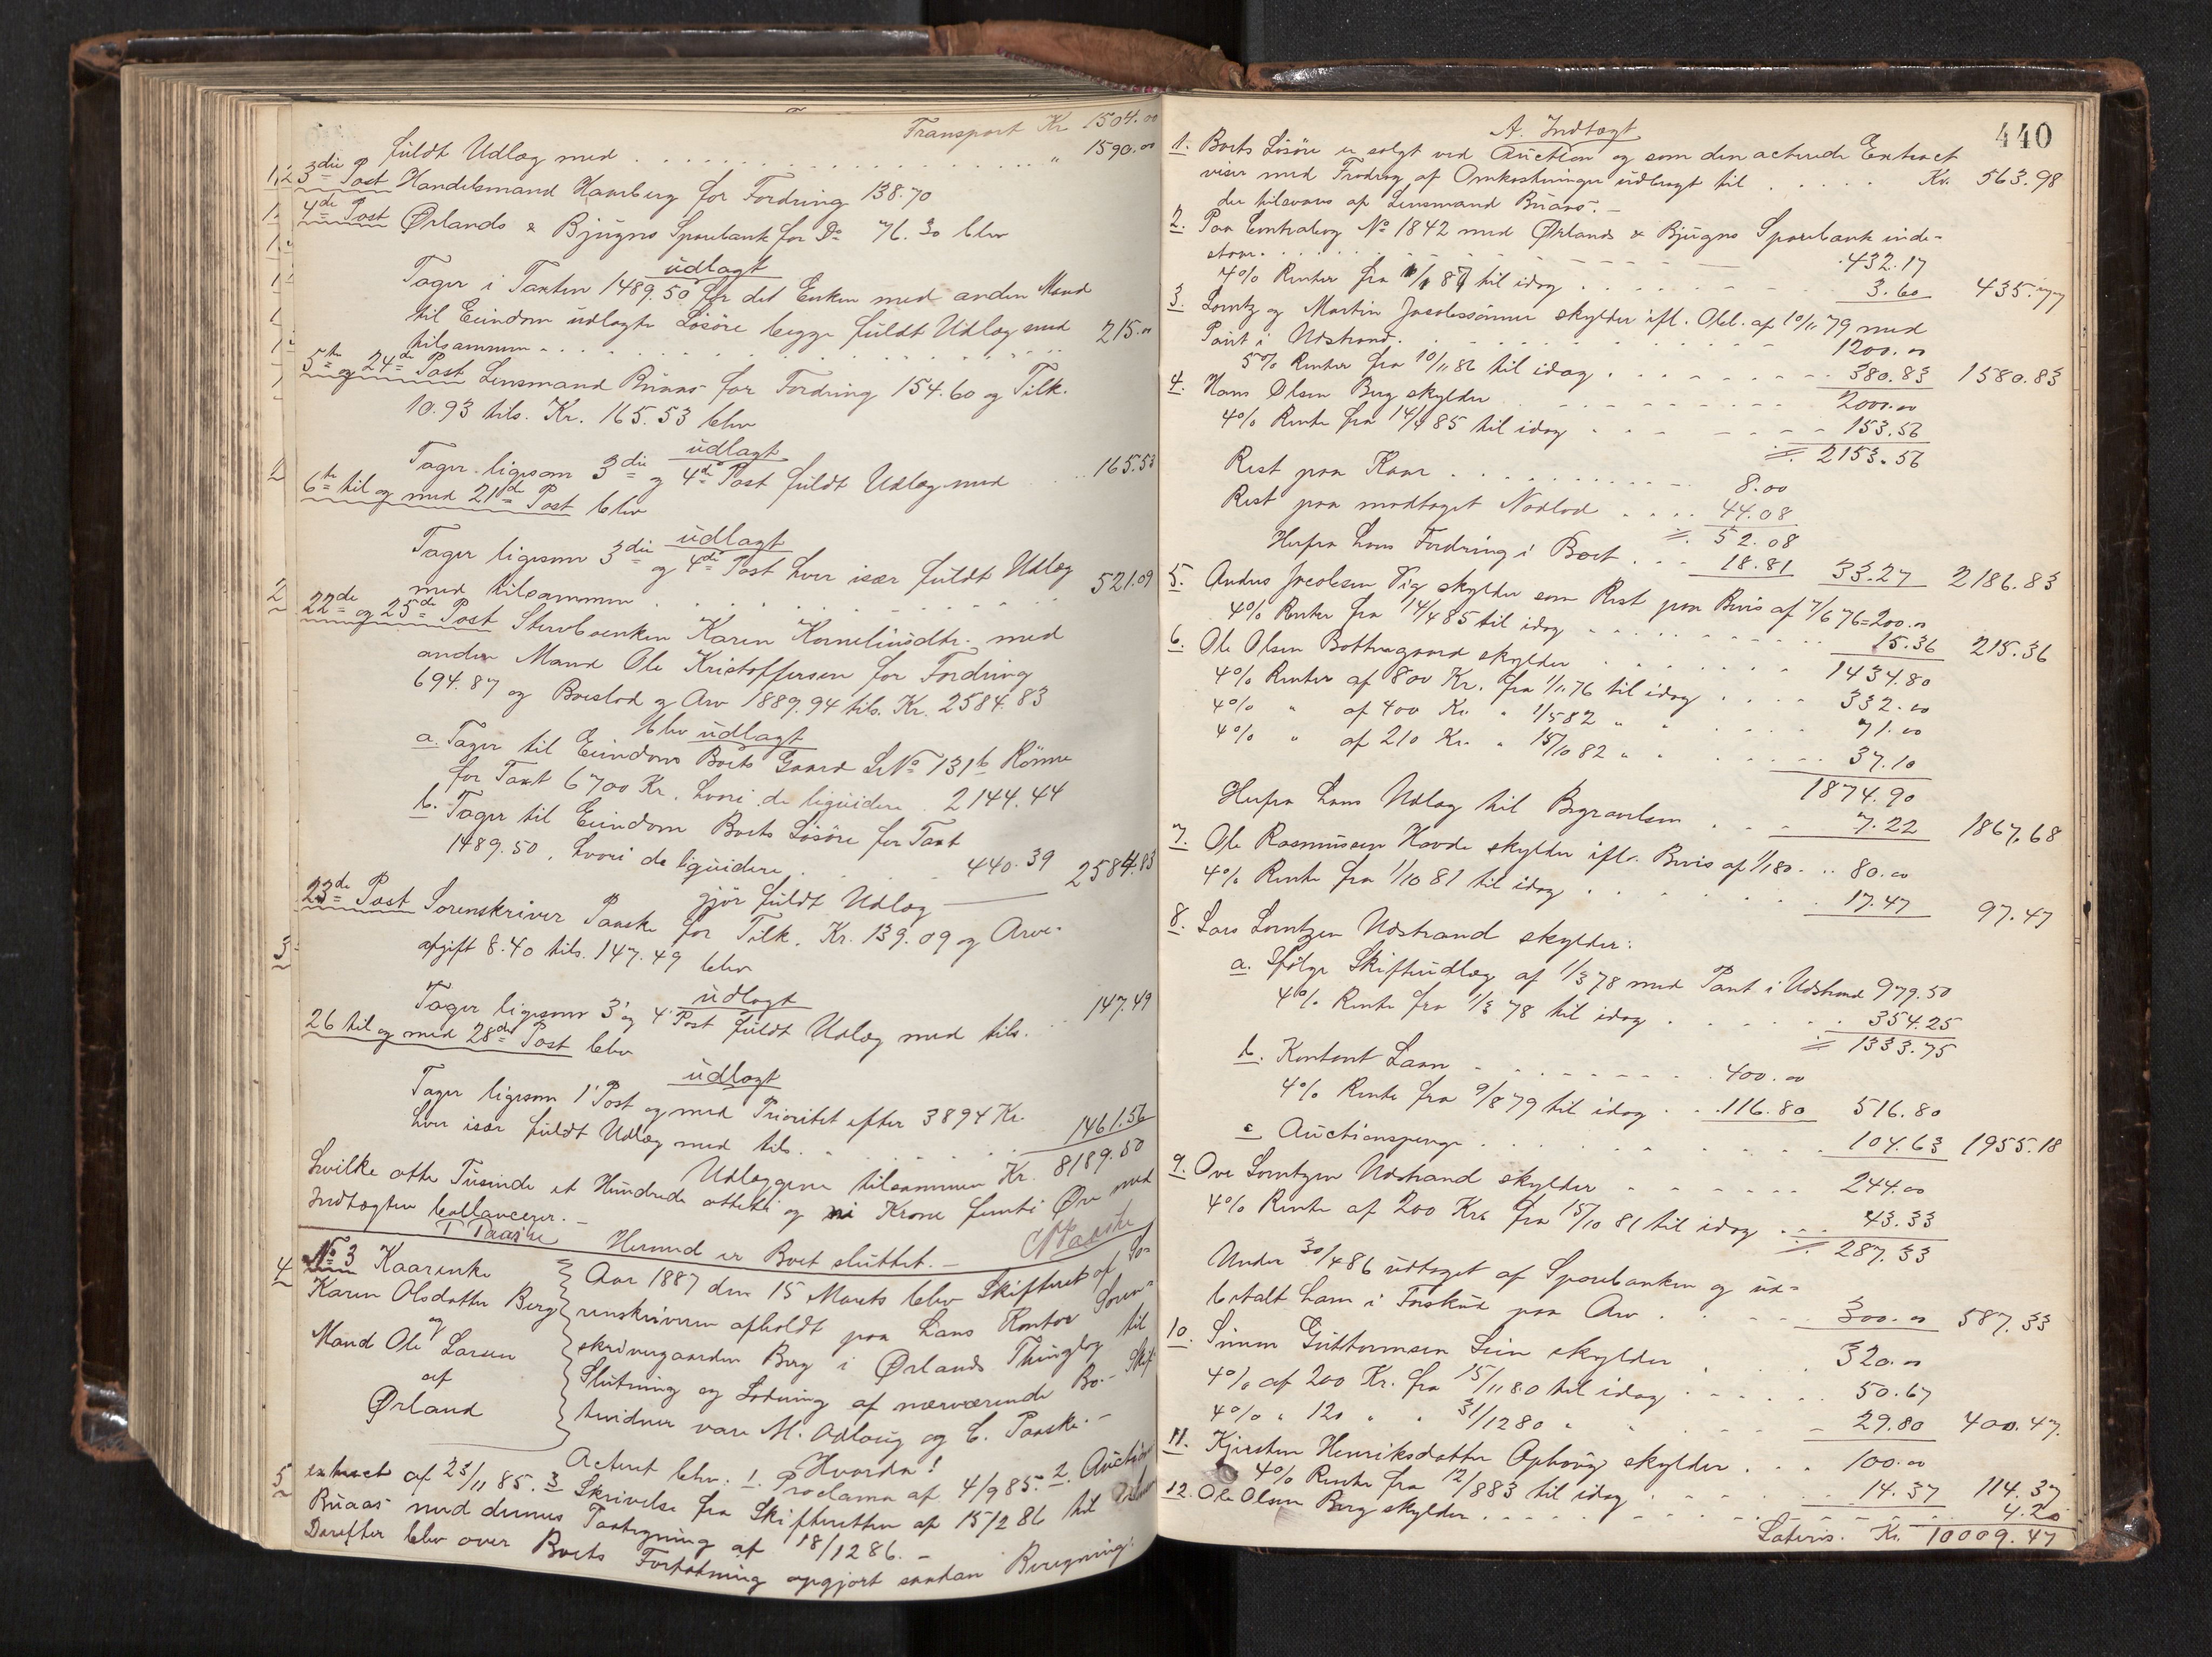 Transport Kr. 1504.00
fuldt Udlæg med . . . . . " 1590.00
3die Post Handelsmand Hamberg for Fordring 138.70
4de Post Ørlands & Bjugns Sparebank for Do 76.30 blev
udlagt
Tager i Taxten 1489.50 for det Enken med anden Mand
til Eiendom udlagte Løsøre begge fuldt Udlæg med
tilsammen . . . . . 215.00
5te og 24de Post Lensmand Buaas for Fordring 154.60 og Tilk.
10.93 tils. Kr. 165.53 blev
udlagt
Tager ligesom 3die og 4de Post fuldt Udlæg med . . 165.53
6te til og med 21de Post blev
udlagt
Tager ligesom 3die og 4de Post hver især fuldt Udlæg
med tilsammen . . . . . 521.09
22de og 25de Post Stervboenken Karen Korneliusdtr. med
anden Mand Ole Kristoffersen for Fordring
694.87 og Boeslod og Arv 1889.94 tils. Kr. 2584.83
blev udlagt
a. Tager til Eiendom Boets Gaard LNo 131b Rønne
for Taxt 6700 Kr. hvori de liquidere . 2144.44
b. Tager til Eiendom Boets Løsøre for Taxt
1489.50, hvori de liquidere . . . 440.39
gjør fuldt Udlæg 2584.83
23de Post Sorenskriver Paaske for Tilk. Kr. 139.09 og Arve-
afgift 8.40 tils. 147.49 blev
udlagt
Tager ligesom 3' og 4' Post fuldt Udlæg med tils. . . 147.49
26 til og med 28de Post blev
udlagt
Tager ligesom 1' Post og med Prioritet efter 3894 Kr.
hver især fuldt Udlæg med tils. . . . . 1461.56
Udlæggene tilsammen Kr. 8189.50
hvilke otte Tusinde et Hundrede otteti og ni Krone femti Øre med
Indtægten ballancerer. —
Hermed er Boet sluttet. —
T Paaske
No 3 Kaarenke
Karen Olsdatter Berg
og
Mand Ole Larsen
af
Ørland
Aar 1887 den 15 Marts blev Skifteret af So-
renskriveren afholdt paa hans Kontor Soren-
skrivergaarden Berg i Ørlands Thinglag til
Slutning og Lodning af nærværende Bo. — Skif-
tevidner vare M. Odlaug og C. Paaske. —
Hvorda!
Acteret blev. 1. Proclama af 4/9 85. 2. Auctions
extract af 23/11 85. 3 Skrivelse fra Skifteretten af 15/12 86 til
Buaas med dennes Paategning af 18/12 86. —
Derefter blev over Boets Forfatning opgjort saadan Beregning:
440
A. Indtægt
1. Boets Løsøre er solgt ved Auction og som den acterede Extract
viser med Fradrag af Omkostninger udbragt til . . . . . Kr. 563.98
der tilsvares af Lensmand Buaas. —
2. Paa Contrabog No 1842 med Ørlands & Bjugns Sparebank inde-
staar . . . . . 432.17
4% Renter fra 1/1 87 til idag . . . . . 3.60 435.77
3. Lorntz og Martin Jacobssønner skylder ifl. Obl. af 10/11 79 med
Pant i Udstrand. . . . . . 1200.00
5% Renter fra 10/11 86 til idag . . . . . 380.83 1580.83
4. Hans Olsen Berg skylder . . . . . 2000.00
4% Rente fra 14/4 85 til idag . . . . . 153.56
÷ 2153.56
Rest paa Kaar . . . . . 8.00
Rest paa modtaget Nadlod . . . . 44.08
÷ 52.08
Herfra hans Fordring i Boet . . . 18.81 33.27 2186.83
5. Anders Jacobsen Vig skylder som Rest paa Bevis af 7/6 76 = 200.00
4% Renter fra 14/4 85 til idag . . . . . 15.36 215.36
6. Ole Olsen Bottengaard skylder . . . . . 1434.80
4% Renter af 800 Kr. fra 1/11 76 til idag . . . . 332.00
4% " af 400 Kr. " 1/5 82 " " . . . . 71.00
4% " af 210 Kr. " 15/10 82 " " . . . . 37.10
1874.90
Herfra hans Udlæg til Begravelsen . . . 7.22 1867.68
7. Ole Rasmussen Hovde skylder ifl. Bevis af 1/1 80 . . . 80.00
4% Rente fra 1/10 81 til idag . . . . . 17.47 97.47
8. Lars Lorntzen Udstrand skylder:
a. Ifølge Skifteudlæg af 1/3 78 med Pant i Udstrand 979.50
4% Rente fra 1/3 78 til idag . . . . . 354.25
÷ 1333.75
b. Kontant Laan . . . . . 400.00
4% Rente fra 9/8 79 til idag . . 116.80 516.80
c Auctionspenge . . . . . 104.63 1955.18
9. Ove Lorntzen Udstrand skylder . . . . . 244.00
4% Rente af 200 Kr. fra 15/10 81 til idag . . . 43.33
÷ 287.33
Under 30/4 86 udtaget af Sparebanken og ud-
betalt ham i Forskud paa Arv . . . . . 300.00 587.33
10. Simon Guttormsen Lein skylder . . . . . 320.00
4% af 200 Kr. fra 15/11 80 til idag . . . . . 50.67
4% " 120 " " 31/12 80 " . . . . . 29.80 400.47
11. Kjersten Henriksdatter Ophoug skylder . . . 100.00
4% Rente fra 12/8 83 til idag . . . . . 14.37 114.37
12. Ole Olsen Berg skylder . . . . . 4.20
Lateris. Kr. 10009.47